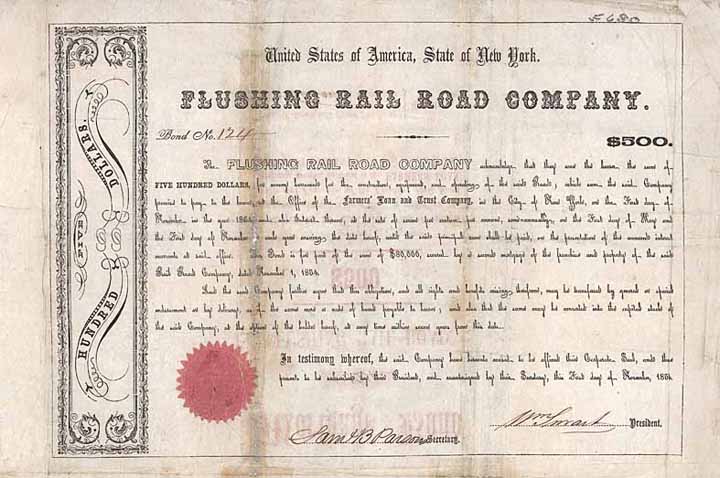 5680
United States of America, State of New York.
FLUSHING RAIL ROAD COMPANY.
Bond No. 124
$500.
The FLUSHING RAIL ROAD COMPANY acknowledge that they owe the bearer the sum of
FIVE HUNDRED DOLLARS, for money borrowed for the construction, equipment, and operating of the said Road, which sum the said Company
promise to pay to the bearer, at the Office of the Farmers' Loan and Trust Company, in the City of New York, on the First day of
November in the year 1864, with interest thereon, at the rate of seven per centum per annum, semi-annually, on the First day of May and
the First day of November in each year ensuing the date hereof, until the said principal sum shall be paid, on the presentation of the annexed interest
warrants at said office. This Bond is for part of the sum of secured by a second mortgage of the franchise and property of the said
Rail Road Company, dated November 1, 1854.
And the said Company further agree that this obligation, and all rights and benefits arising therefrom, may be transferred by general or special
endorsement or by delivery, as if the same were a note of hand payable to bearer; and also that the same may be converted into the capital stock
of the said Company, at the option of the holder hereof, at any time within years from this date.
In testimony whereof, the said Company have hereunto caused to be affixed their Corporate Seal, and these
presents to be subscribed by their President, and countersigned by their Secretary, this First day of November, 1854.
Saml B Parsons Secretary.
Wm Smart President.
FIVE
HUNDRED
DOLLARS.